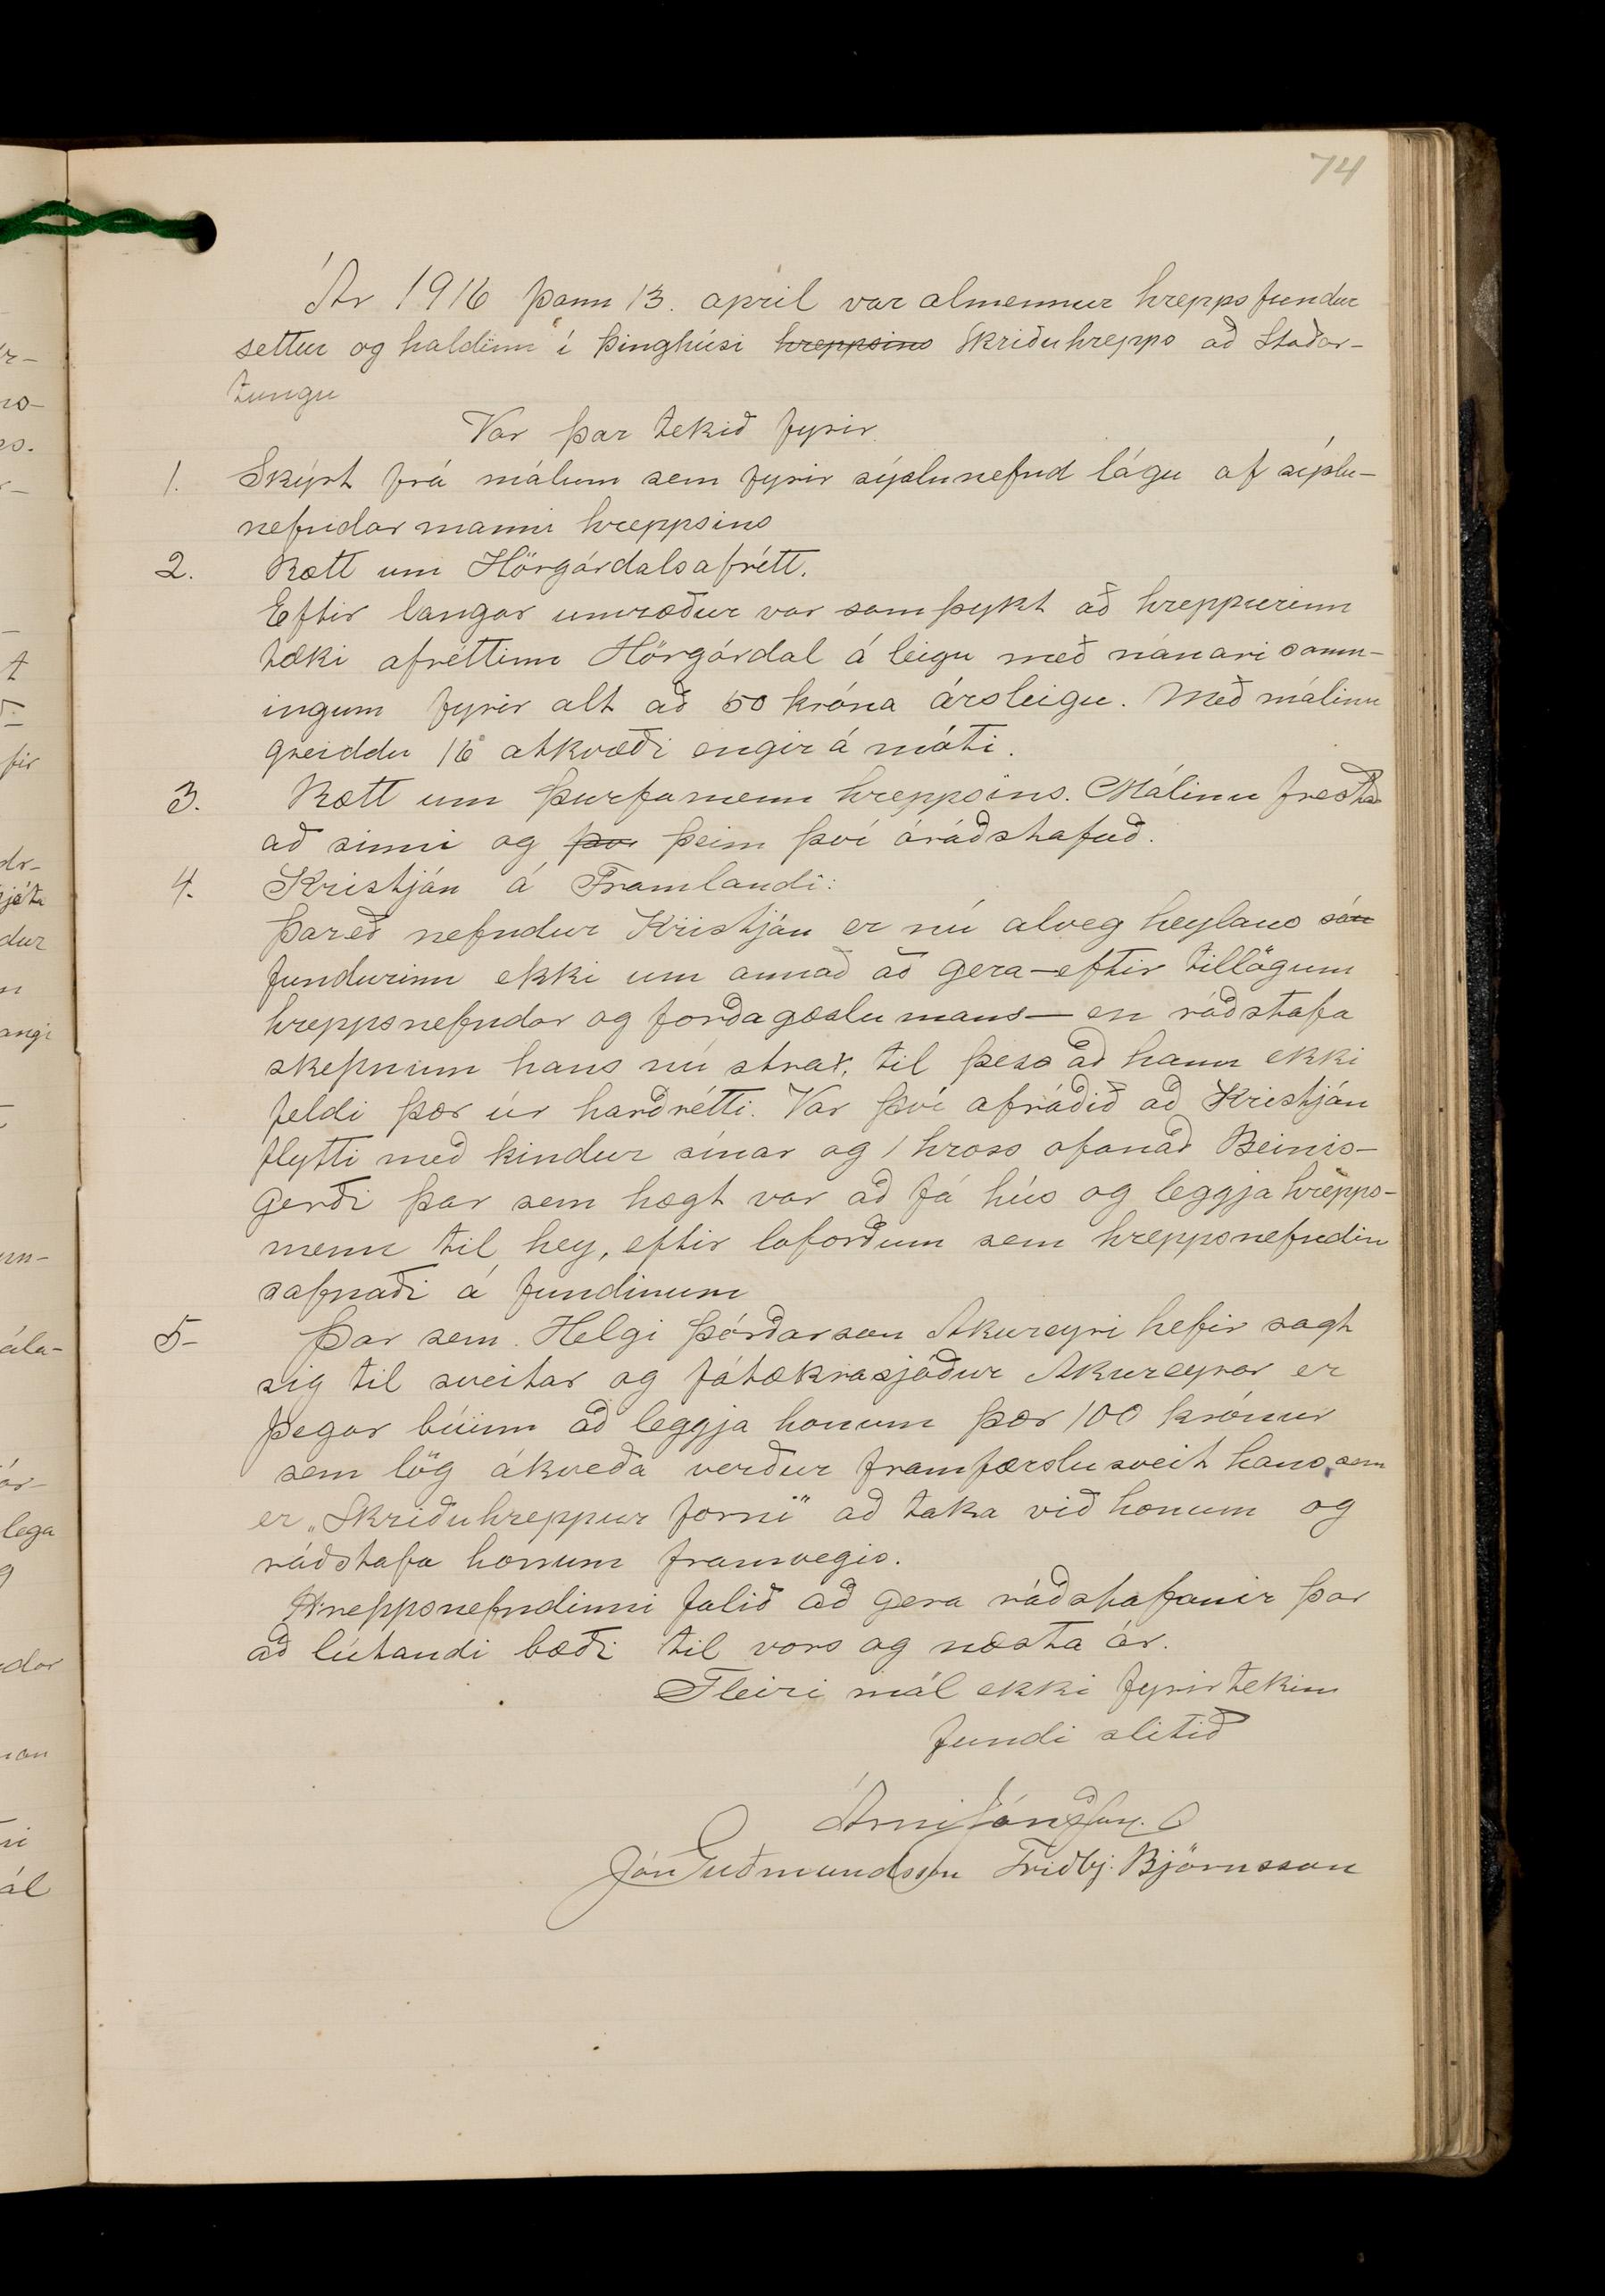 74
Ár 1916 þann 13. apríl var almennur hreppsfundur
settur og haldinn í þinghúsi hreppsins Skriðuhrepps að Staðar-
tungu
Var þar tekið fyrir.
1. Skýrt frá málum sem fyrir sýslunefnd lágu af sýslu-
nefndar manni hreppsins
2. Rætt um Hörgárdalsafrétt.
Eftir langar umræður var samþykt að hreppurinn
tæki afréttinn Hörgárdal á leigu með nánari samn-
ingum fyrir alt að 50 króna ársleigu. Með málinu
greiddu 16 atkvæði engir á móti.
3. Rætt um þurfamenn hreppsins. Málinu frestað
að sinni og þar þeim því óráðstafað.
4. Kristján á Framlandi:
Þareð nefndur Kristján er nú alveg heylaus sá
fundurinn ekki um annað að gera – eftir tillögum
hreppsnefndar og forðagæslumans – en ráðstafa
skepnum hans nú strax, til þess að hann ekki
feldi þær úr harðrétti. Var því afráðið að Kristján
flytti með kindur sínar og 1 hross ofanað Beinis-
gerði þar sem hægt var að fá hús og leggja hrepps-
menn til hey, eftir loforðum sem hreppsnefndin
safnaði á fundinum
5- Þar sem Helgi Þórðarson Akureyri hefir sagt
sig til sveitar og fátækrasjóður Akureyrar er
þegar búinn að leggja honum þær 100 krónur
sem lög ákveða verður framfærslusveit hans sem
er „Skriðuhreppur forni" að taka við honum og
ráðstafa honum framvegis.
Hreppsnefndinni falið að gera ráðstafanir þar
að lútandi bæði til vors og næsta ár.
Fleiri mál ekki fyrirtekin
fundi slitið
Árni Jónsson
Jón Guðmundsson Friðbj. Björnsson